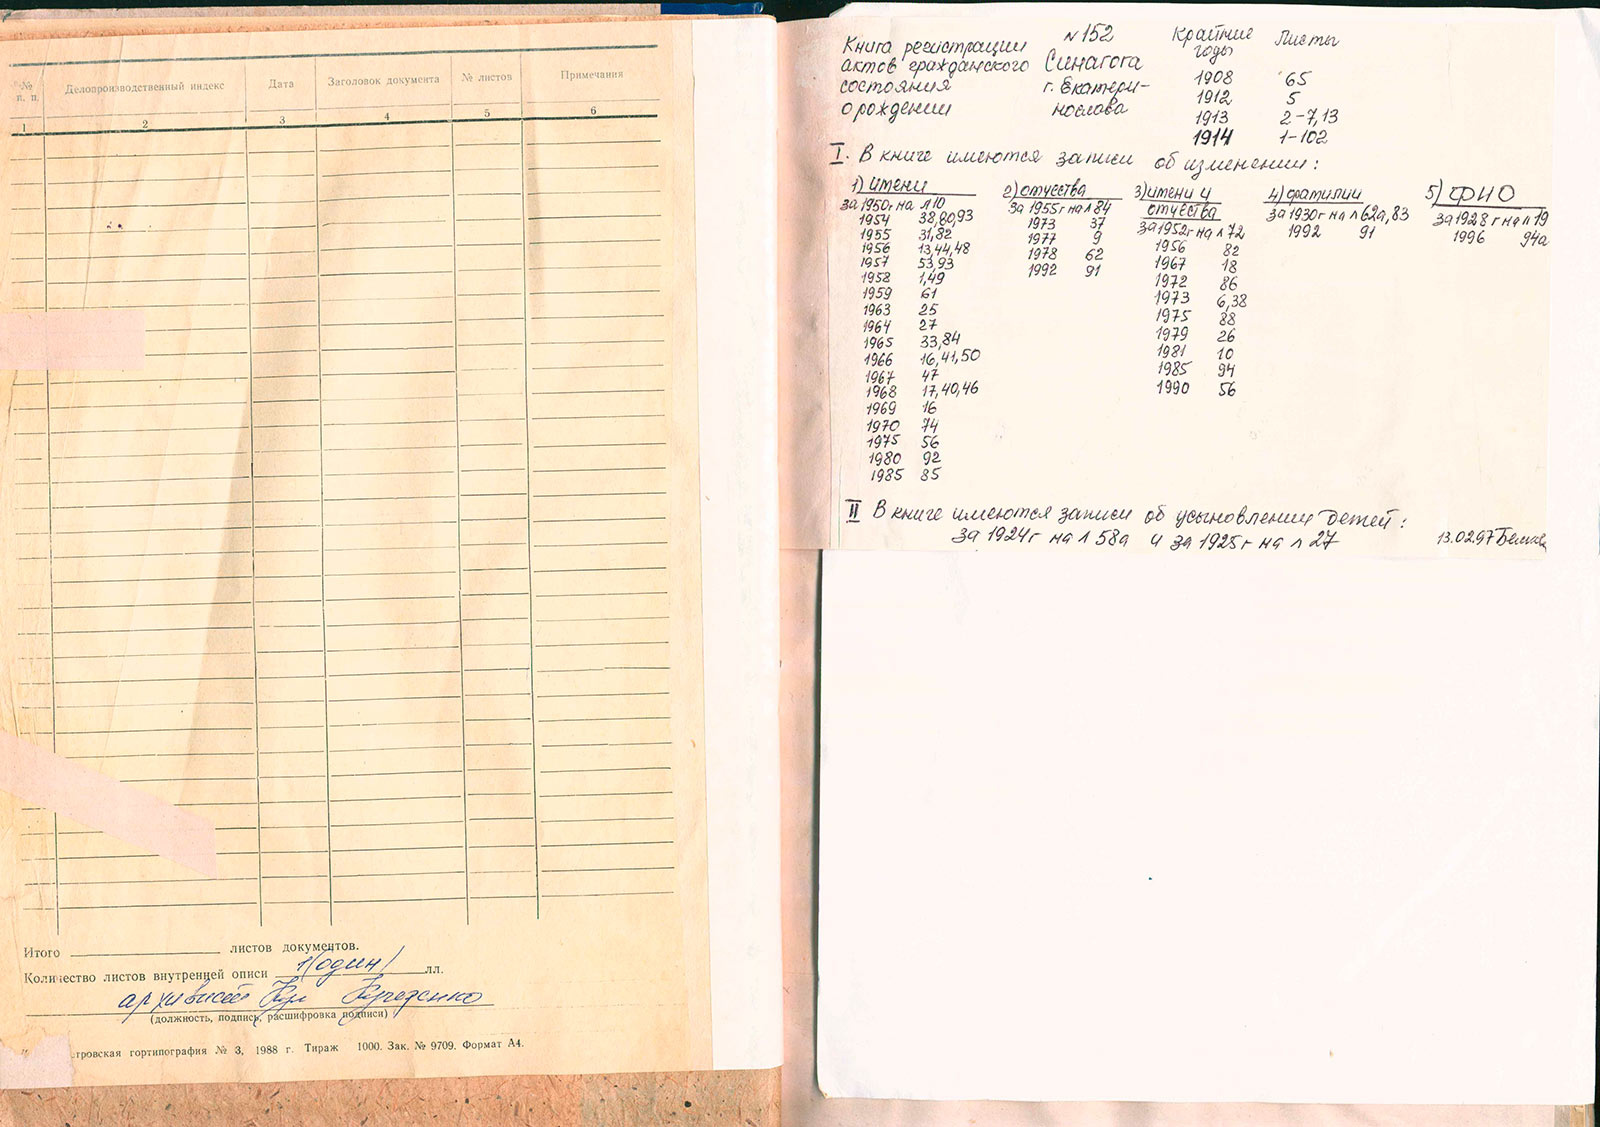 № п. п.
Делопроизводственный индекс
Дата
Заголовок документа
№ листов
Примечания
1 2 3 4 5 6
Итого листов документов.
Количество листов внутренней описи 1 (один) лл.
архивист
(должность, подпись, расшифровка подписи)
тровская гортипография № 3, 1988 г. Тираж 1000. Зак. № 9709. Формат А4.
Книга регистрации
актов гражданского
состояния
о рождении
№152
Синагога
г. Екатери-
нослава
Крайние годы Листы
1908 65
1912 5
1913 2-7,13
1914 1-102
I. В книге имеются записи об изменении:
1) имени
за 1950г на л 10
1954 38,80,93
1955 31,82
1956 13,44,48
1957 53,93
1958 1,49
1959 61
1963 25
1964 27
1965 33,84
1966 16,41,50
1967 47
1968 17,40,46
1969 16
1970 74
1975 56
1980 92
1985 85
2) отчества
за 1955г на л 84
1973 37
1977 9
1978 62
1992 91
3) имени и
отчества
за 1952г на л 72
1956 82
1967 18
1972 86
1973 6,38
1975 88
1979 26
1981 10
1985 94
1990 56
4) фамилии
за 1930г на л 62а,83
1992 91
5) ФИО
за 1928г на л 19
1996 94а
II В книге имеются записи об усыновлении детей:
за 1924г на л 58а и за 1925г на л 27
13.02.97